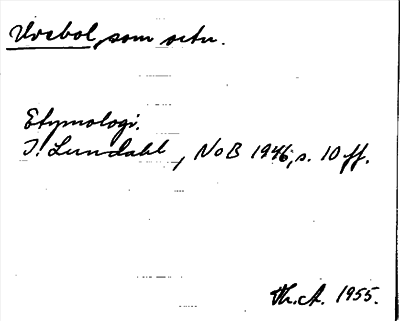 Vrebol, som ortn.
Etymologi.
I. Lundahl, NoB 1946, s. 10 ff.
Th. A. 1955.